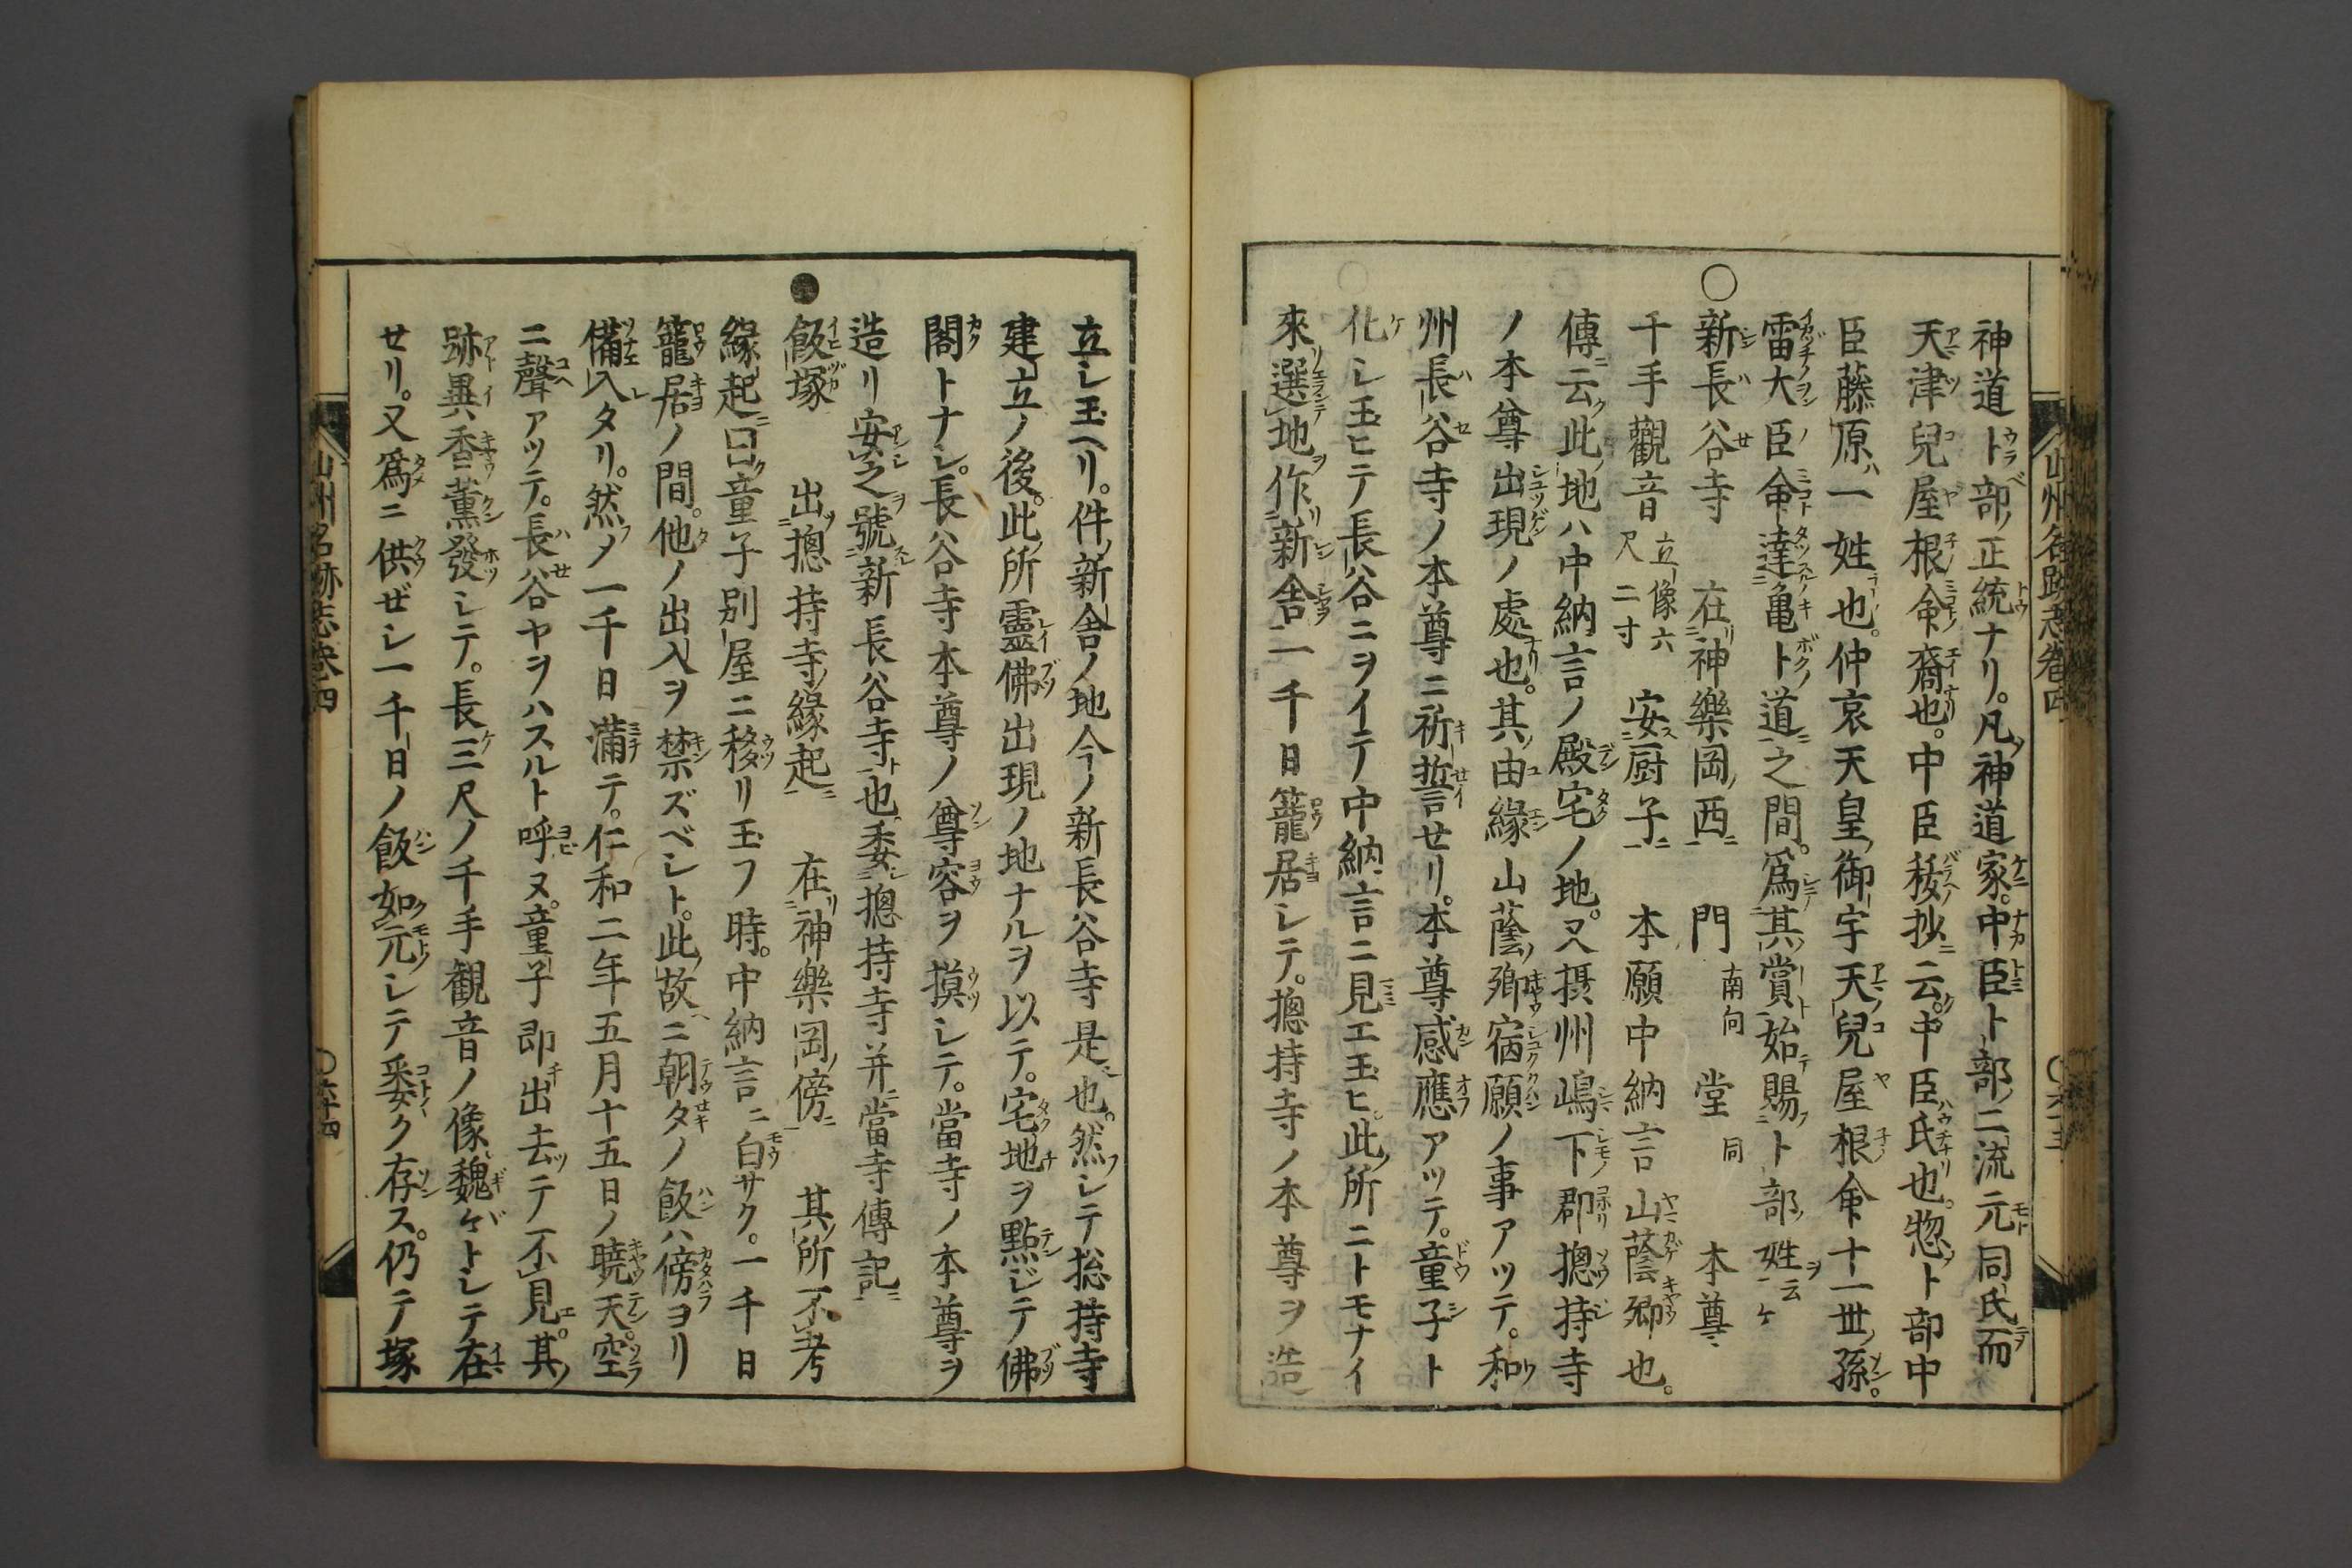 神道卜部ノ正統ナリ。凡ソ神道家。中臣卜部ノ二流元同氏而
天津兒屋根命裔也。中臣秡抄ニ云。中臣氏也。惣卜部中
臣藤原ハ一姓也。仲哀天皇御宇天兒屋根命十一世孫。
雷大臣命達亀卜道之間。爲其賞始賜卜部姓云ケ
○新長谷寺 在神樂岡西 門 南向 堂 同 本尊
千手觀音 立像六尺二寸 安厨子 本願中納言山蔭卿也。
傳ニ云此地ハ中納言ノ殿宅ノ地。又摂州嶋下郡摠持寺
ノ本尊出現ノ處也。其由緣山蔭卿宿願ノ事アツテ。和
州長谷寺ノ本尊ニ祈誓せリ。本尊感應アツテ。童子ト
化シ玉ヒテ長谷ニヲイテ中納言ニ見エ玉ヒ。此所ニトモナイ
來選地作新舎ニ一千日籠居シテ。摠持寺ノ本尊ヲ造
山州名跡志卷四
立シ玉ヘリ。件ノ新舎ノ地今ノ新長谷寺是也。然シテ捴持寺
建立ノ後。此所靈佛出現ノ地ナルヲ以テ。宅地ヲ點ジテ佛
閣トナシ。長谷寺本尊ノ尊容ヲ摸シテ。當寺ノ本尊ヲ
造リ安之號新長谷寺也。委摠持寺并當寺傳記
●飯塚 出摠持寺緣起 在神樂岡傍 其所不考
緣起曰童子別屋ニ移リ玉フ時。中納言ニ白サク。一千日
籠居ノ間。他ノ出入ヲ禁ズベシト。此故ニ朝夕ノ飯ハ傍ヨリ
備入タリ。然ノ一千日滿テ。仁和二年五月十五日ノ曉天空
ニ聲アツテ。長谷ヤヲハスルト呼ヌ。童子即出去テ不見。其
跡異香薰發シテ。長三尺ノ千手観音ノ像。魏ゲトシテ在
せリ。又爲ニ供ぜシ一千日ノ飯如元シテ悉ク存ス。仍テ塚
山州名跡志卷四
○六十四